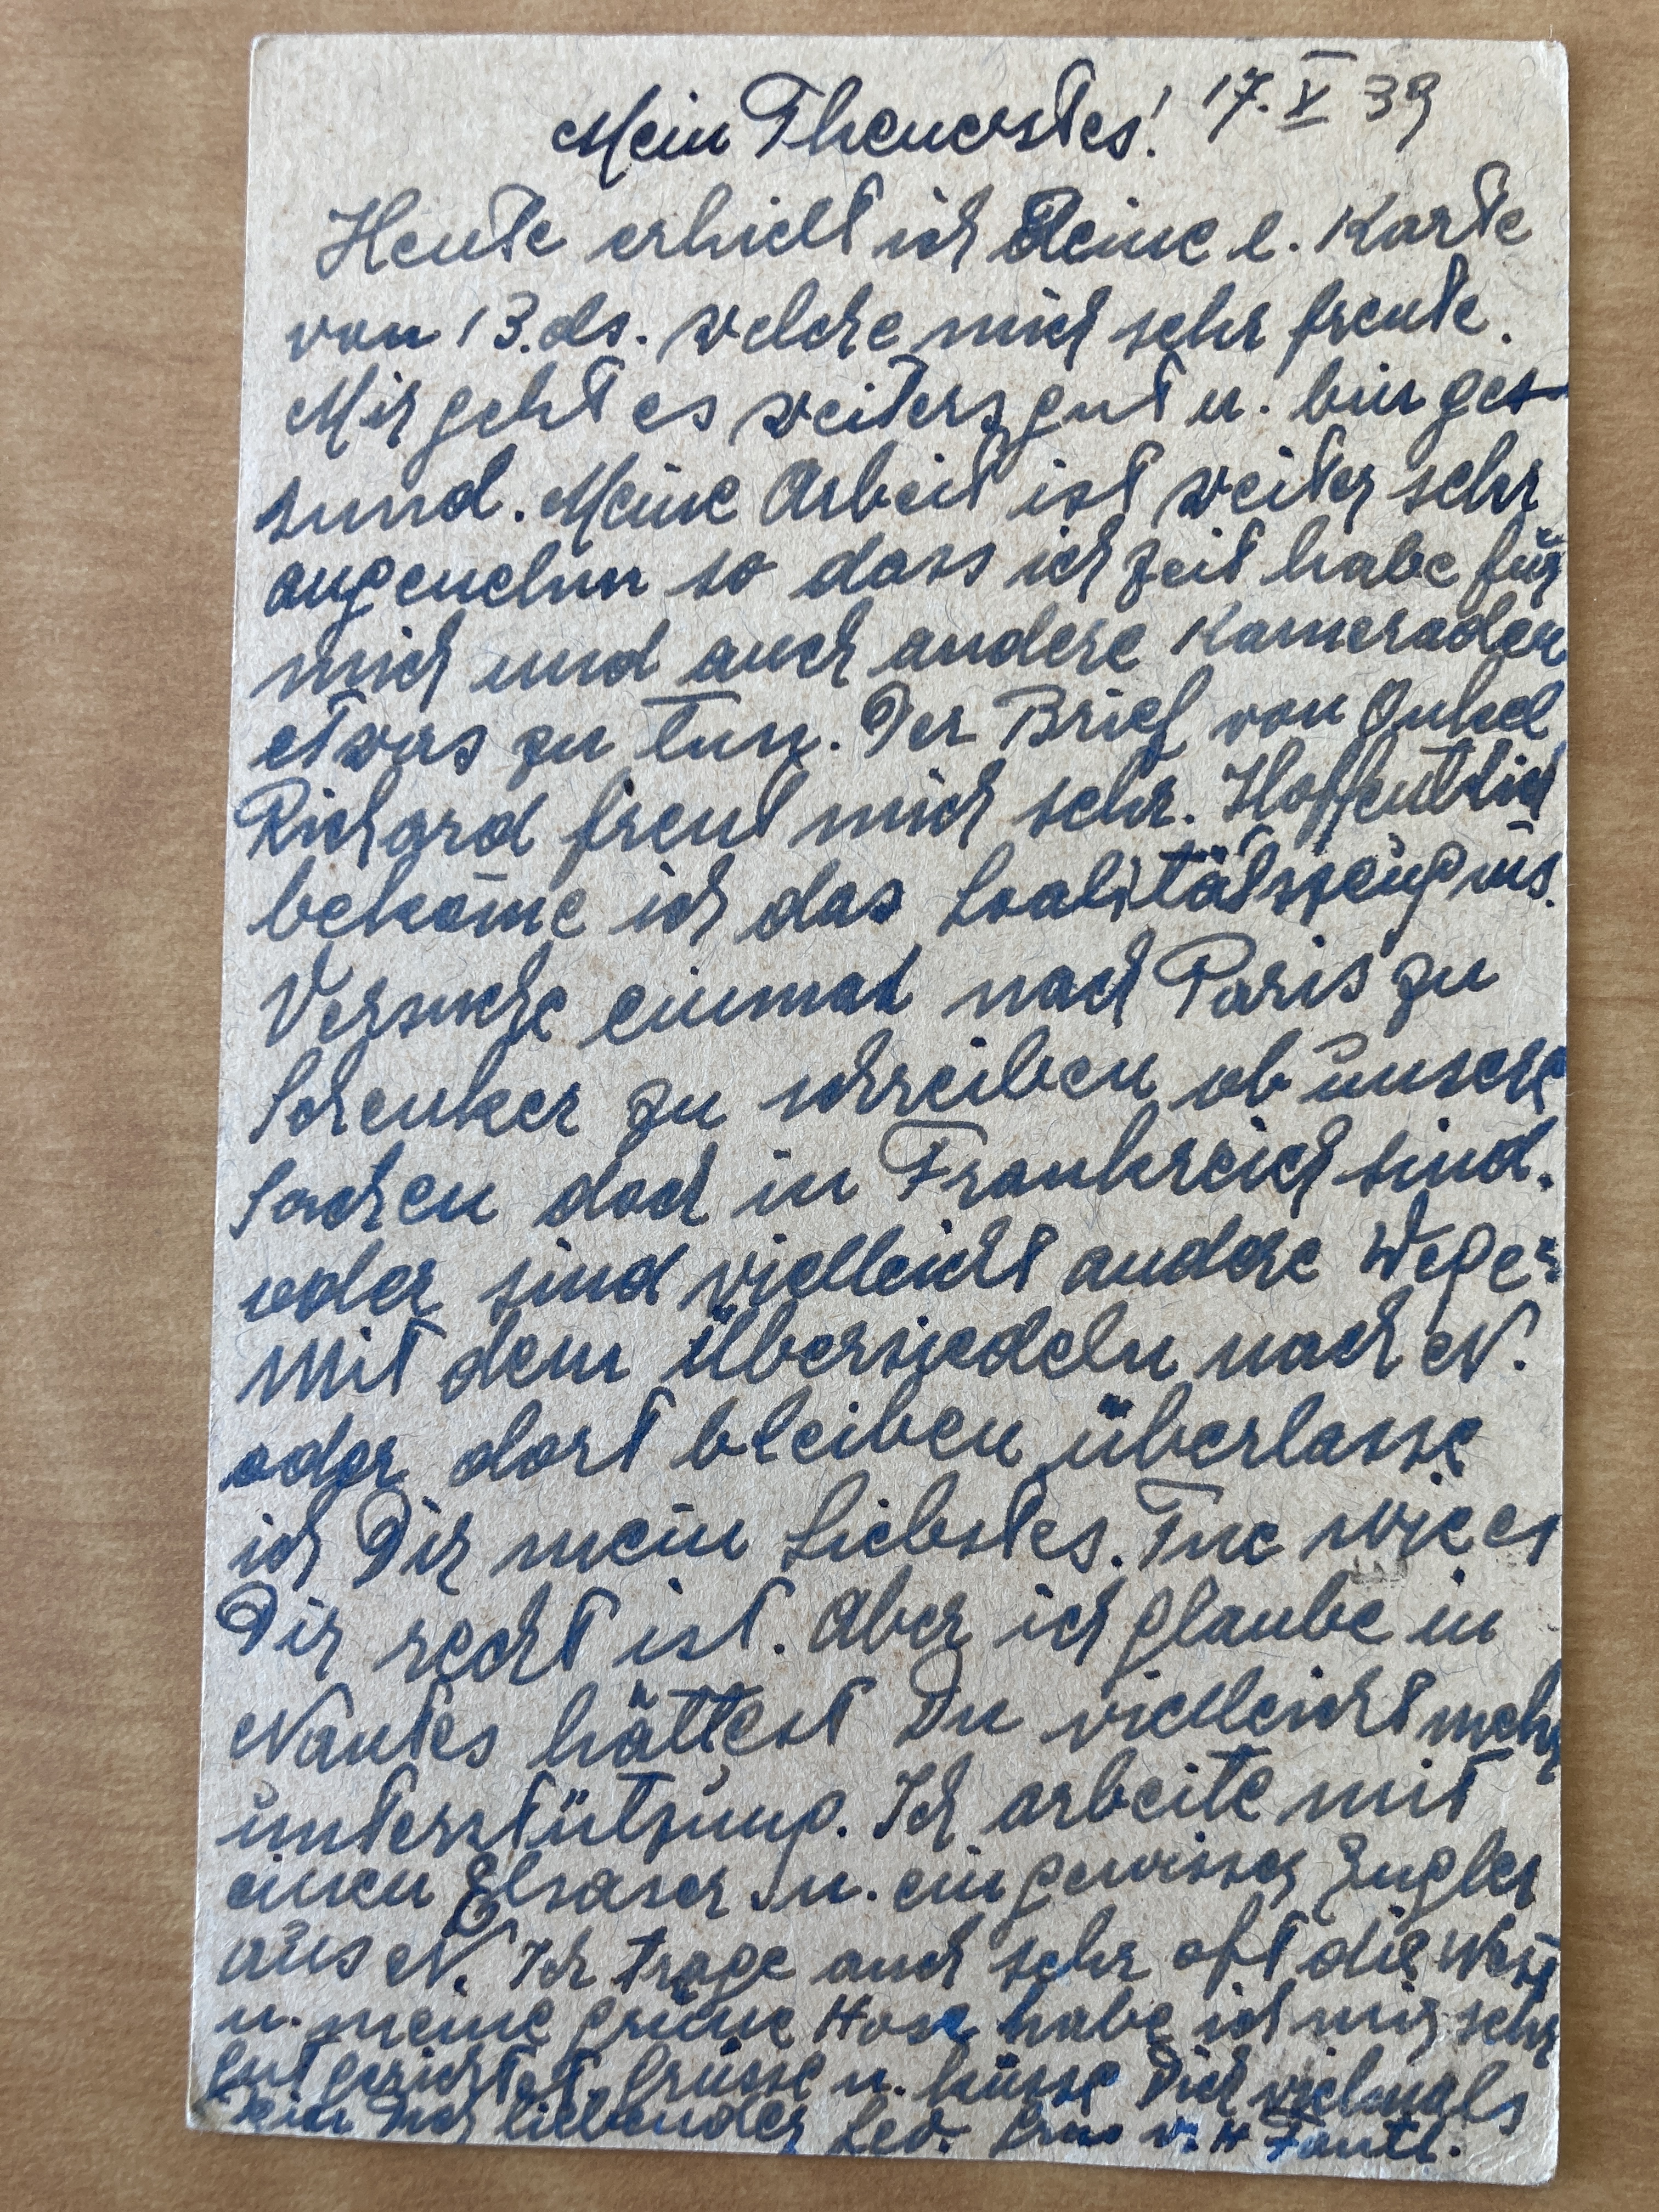 Mein Theuerstes! 17. X 39
Heute erhielt ich Deine l. Karte
von 13. ds. welche mich sehr freute.
Mir geht es weiters gut u. bin ge-
sund. Meine Arbeit ist weiter sehr
angenehm so dass ich Zeit habe für
mich und auch andere Kameraden
etwas zu tun. Der Brief von Onkel
Richard freut mich sehr. Hoffentlich
bekom̄e ich das Loalitätszeugnis.
Versuche einmal nach Paris zu
Schenker zu schreiben ob unsere
Sachen doch in Frankreich sind.
oder sind vielleicht andere Wege.
mit dem Übersiedeln nach N.
oder dort bleiben überlasse
ich Dir mein Liebstes. Tue wie es
Dir recht ist. Aber ich glaube in
Nantes hättest Du vielleicht mehr
Unterstützung. Ich arbeite mit
einen Elsaser u. ein gewisser Engler
aus N. Ich trage auch sehr oft die West
u. meine grüne Hose habe ich mir sehr
gut gerichtet. Grüsse u. küsse Dich vielmals
Dein Dich liebender Leo.